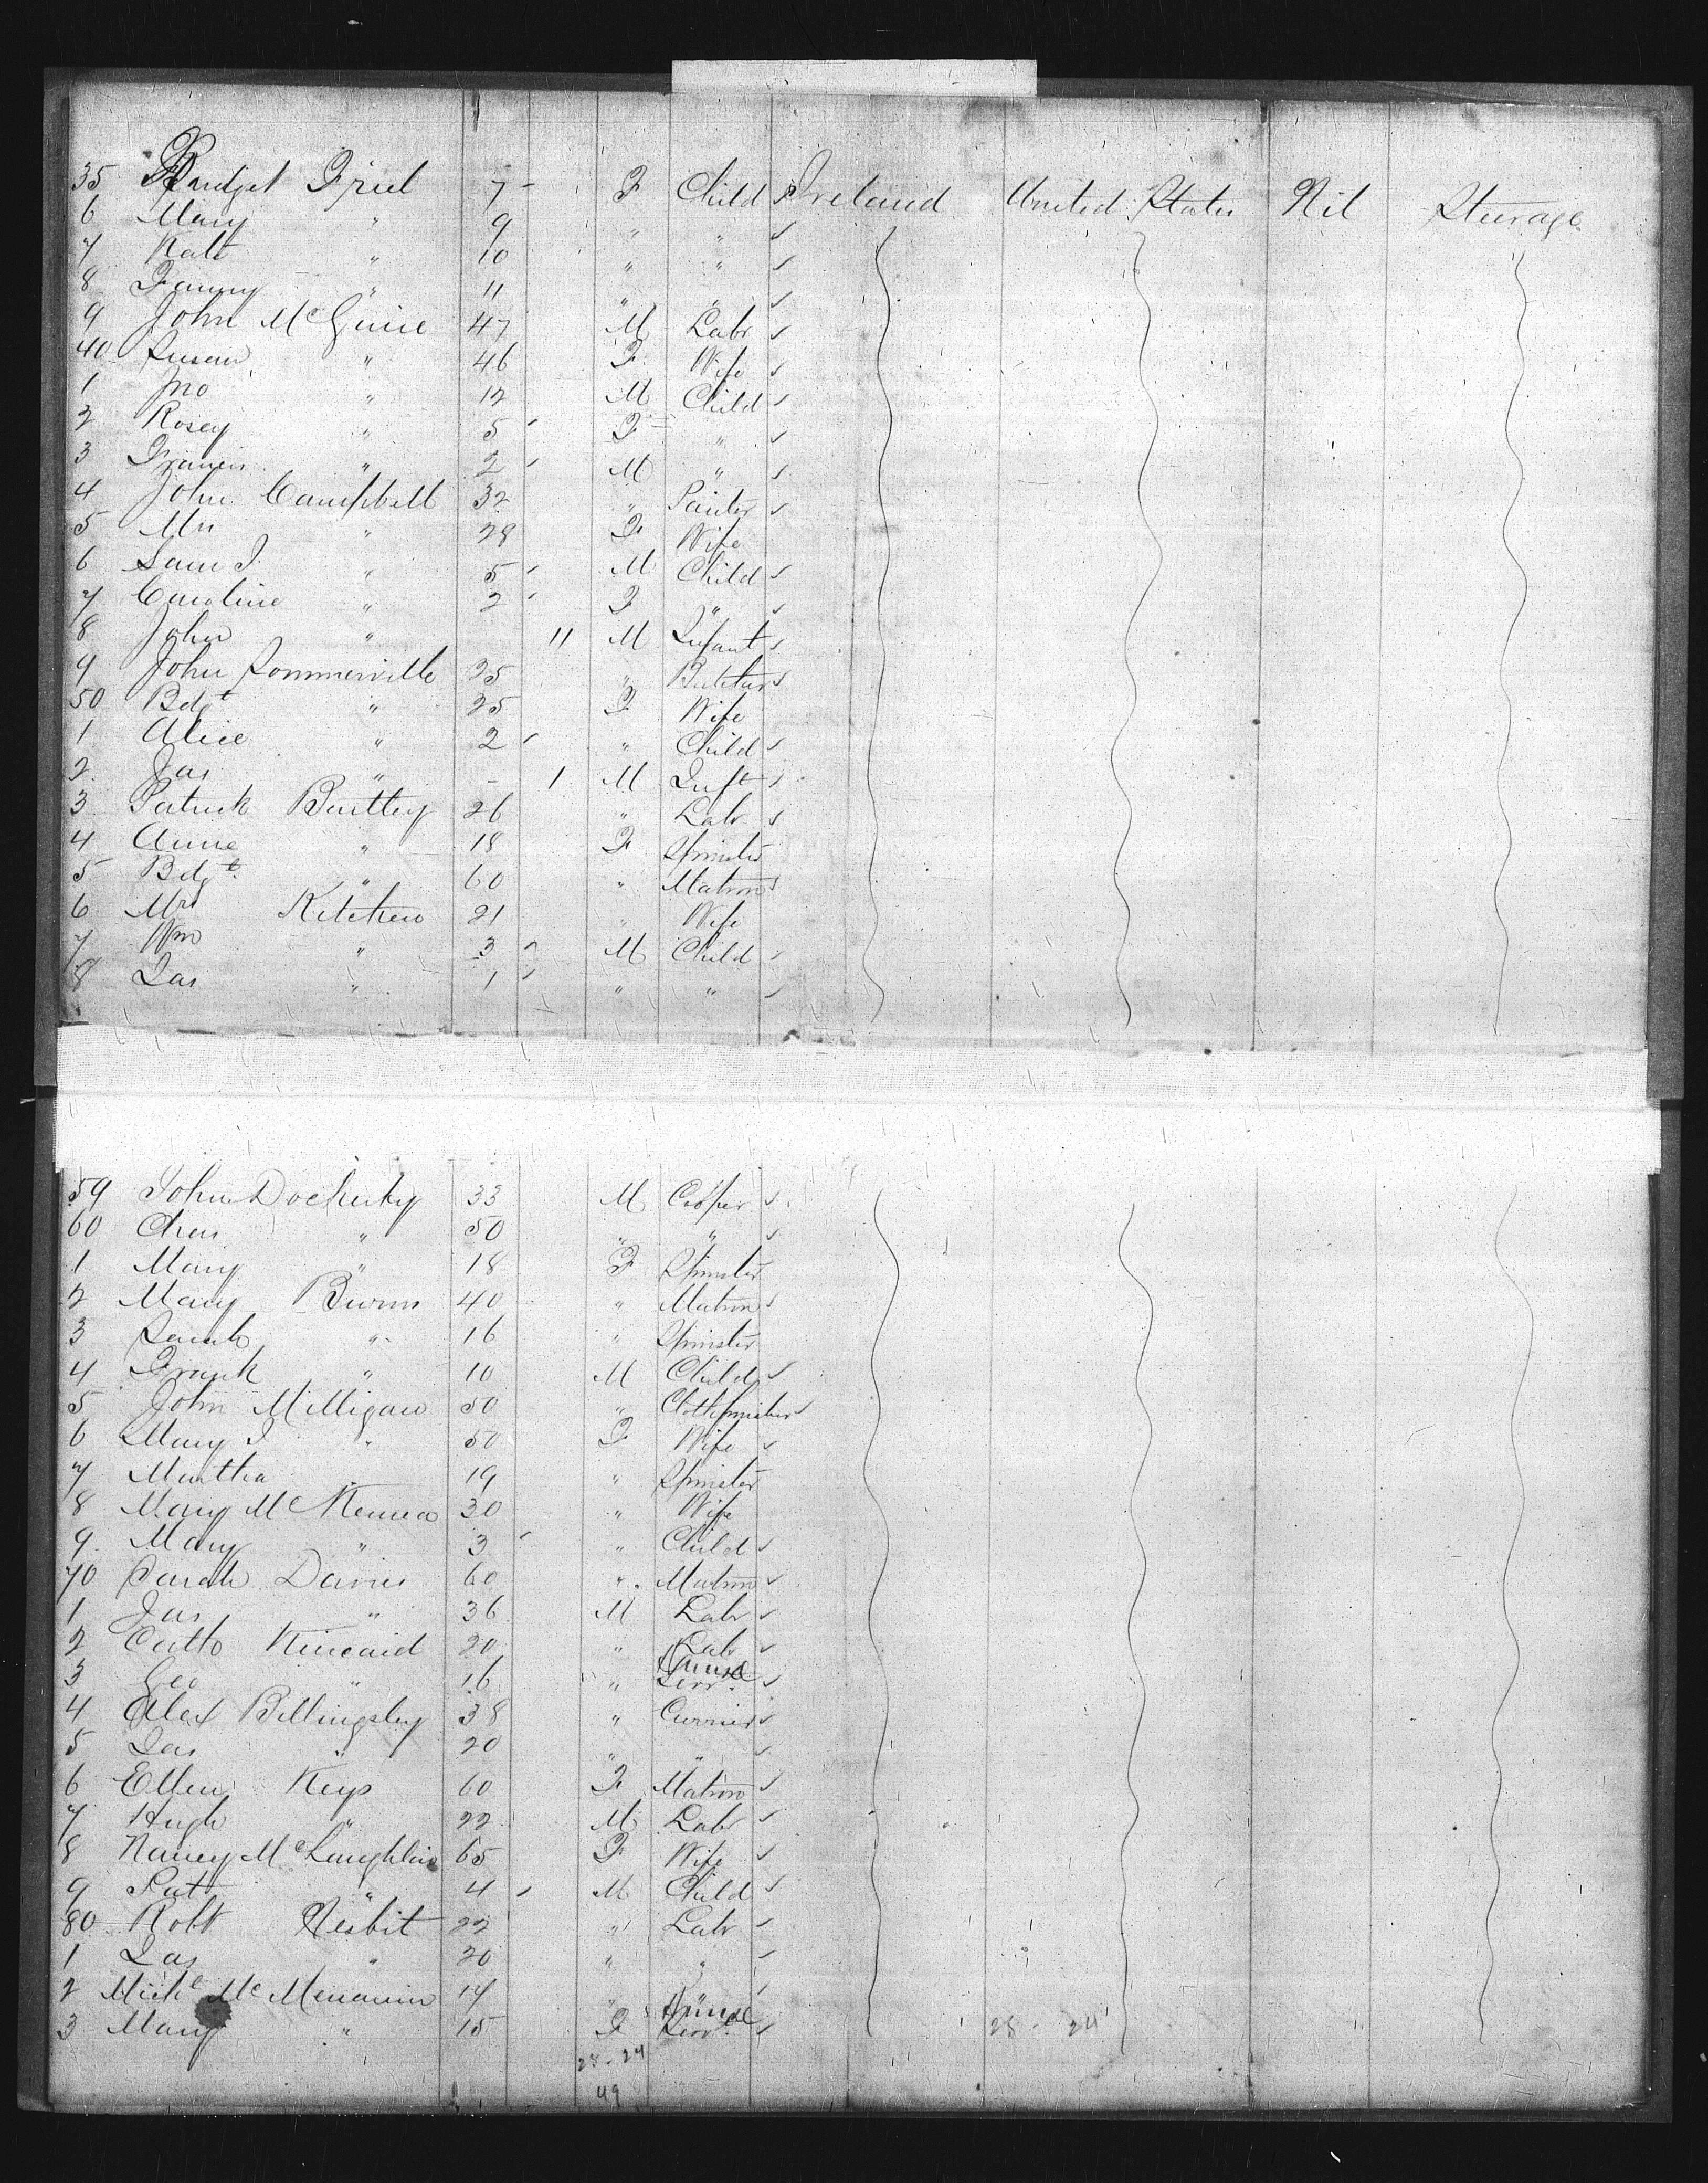 35 Bridget Friel 7 - F Child Ireland United States Nil Steerage
6 Mary " 9 " "
7 Kate " 10 " "
8 Fanny " 11 " "
9 John McGuire 47 M Labr
40 Susan " 46 F Wife
1 Jno " 12 M Child
2 Rosey " 5 F "
3 Francis " 2 M "
4 John Campbell 32 " Painter
5 Mrs " 28 F Wife
6 Sam J. " 5 M Child
7 Caroline " 2 F "
8 John " 11 M Infant
9 John Sommerville 25 " Butcher
50 Bdgt " 25 F Wife
1 Alice " 2 " Child
2 Jas " - 1 M Inft
3 Patrick Bartley 26 " Labr
4 Anne " 18 F Spinster
5 Bdgt " 60 " Matron
6 Mrs Kitchen 21 " Wife
7 Wm " 3 M Child
8 Jas " 1 " "
59 John Docherty 33 M Cooper
60 Chas " 50 " "
1 Mary " 18 F Spinster
2 Mary Burns 40 " Matron
3 Sarah " 16 " Spinster
4 Frank " 10 M Child
5 John Milligan 50 " Clothfinisher
6 Mary J. " 50 F Wife
7 Martha 19 " Spinster
8 Mary McKenna 30 " Wife
9 Mary " 3 " Child
70 Sarah Davies 60 " Matron
1 Jas " 36 M Labr
2 Kincaid 20 " Labr
3 Geo " 16 " House Servt
4 Alex Billingsley 38 " Currier
5 Jas " 20 " "
6 Ellen Keys 60 F Matron
7 Hugh " 22 M Labr
8 Nancy McLaughlin 65 F Wife
9 Pat " 4 M Child
80 Robt Nesbit 22 " Labr
1 Jas " 20 " "
2 Michl McMenamin 14 " "
3 Mary " 15 F House Servt 25 - 24
25 - 24
49